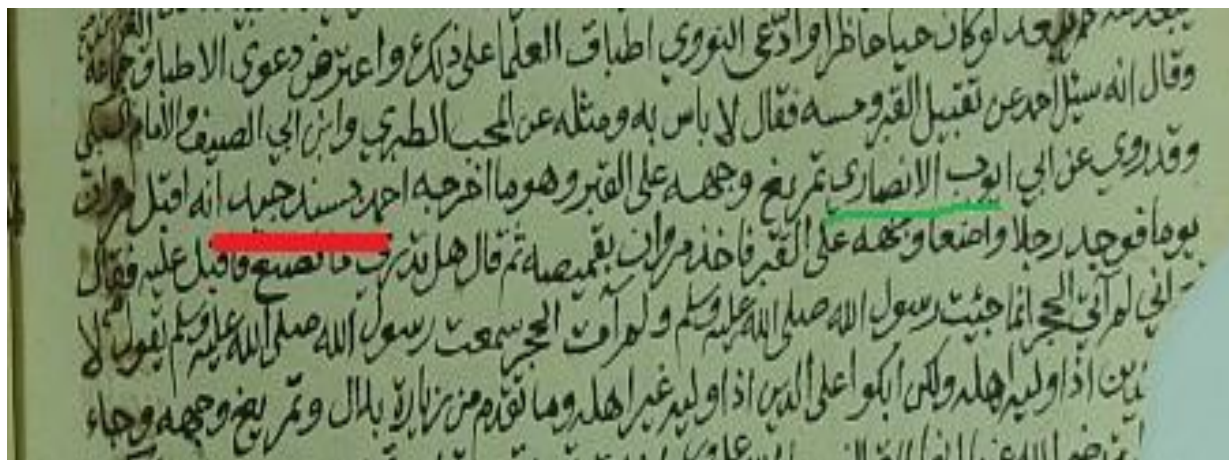 يبعد عنه كما يبعد لو كان حيا حاظرا وادعى النووي اطباق العلما على ذلك واعترض دعوى الاطباق جماعة
وقال انه سئل احمد عن تقبيل القبر ومسه فقال لا باس به ومثله عن المحب الطبري وابن ابي الصيف والامام السبكي
وقد روي عن ابي ايوب الانصاري تمريغ وجهه على القبر وهو ما اخرجه احمد بسند جيد انه اقبل مروان
يوما فوجد رجلا واضعا وجهه على القبر فاخذ مروان بقميصه ثم قال هل تدري ما تصنع فاقبل عليه فقال
اني لم آتي الحجر انما جئت رسول الله صلى الله عليه وسلم ولم آت الحجر سمعت رسول الله صلى الله عليه وسلم يقول لا
الدين اذا وليه اهله ولكن ابكوا على الدين اذا وليه غير اهله وما تقدم من زيارة بلال وتمريغ وجهه وجاء